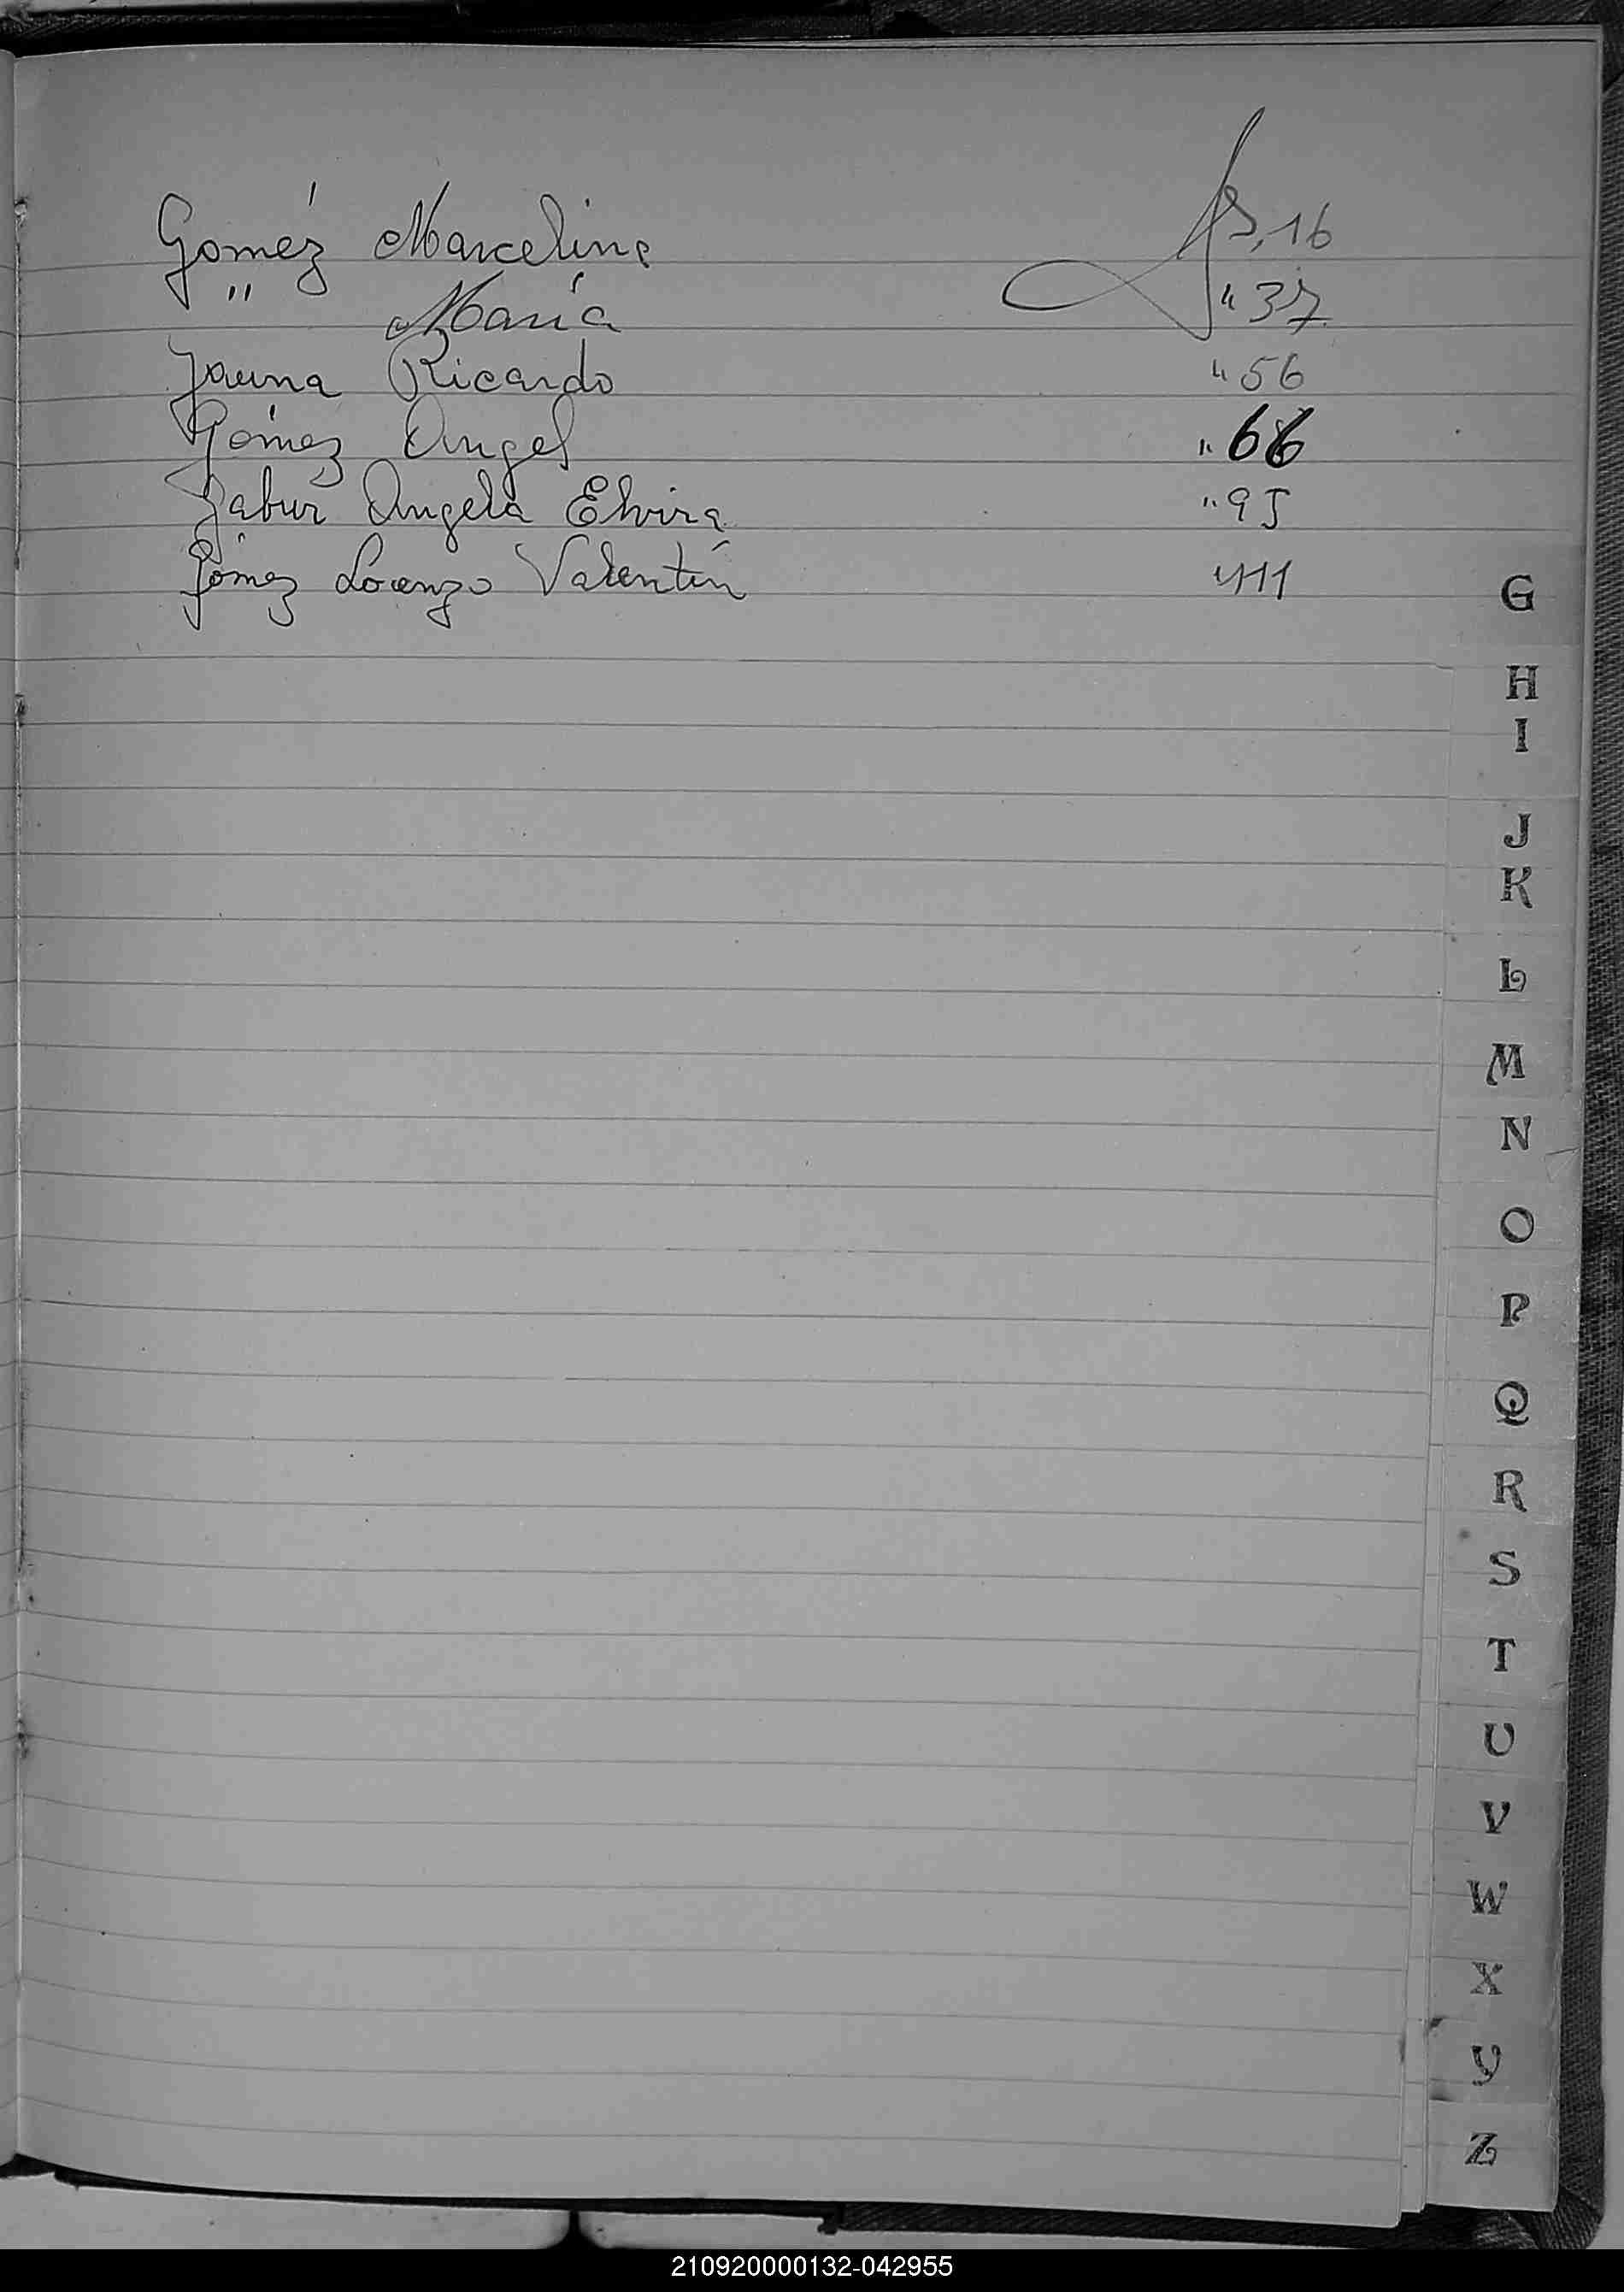 Goméz Marcelino fs, 16
" María " 37
Gauna Ricardo " 56
Gómez Angel " 66
Gabur Angela Elvira " 95
Gómez Lorenzo Valentín " 111
G
H
I
J
K
L
M
N
O
P
Q
R
S
T
U
V
W
X
Y
Z
210920000132-042955